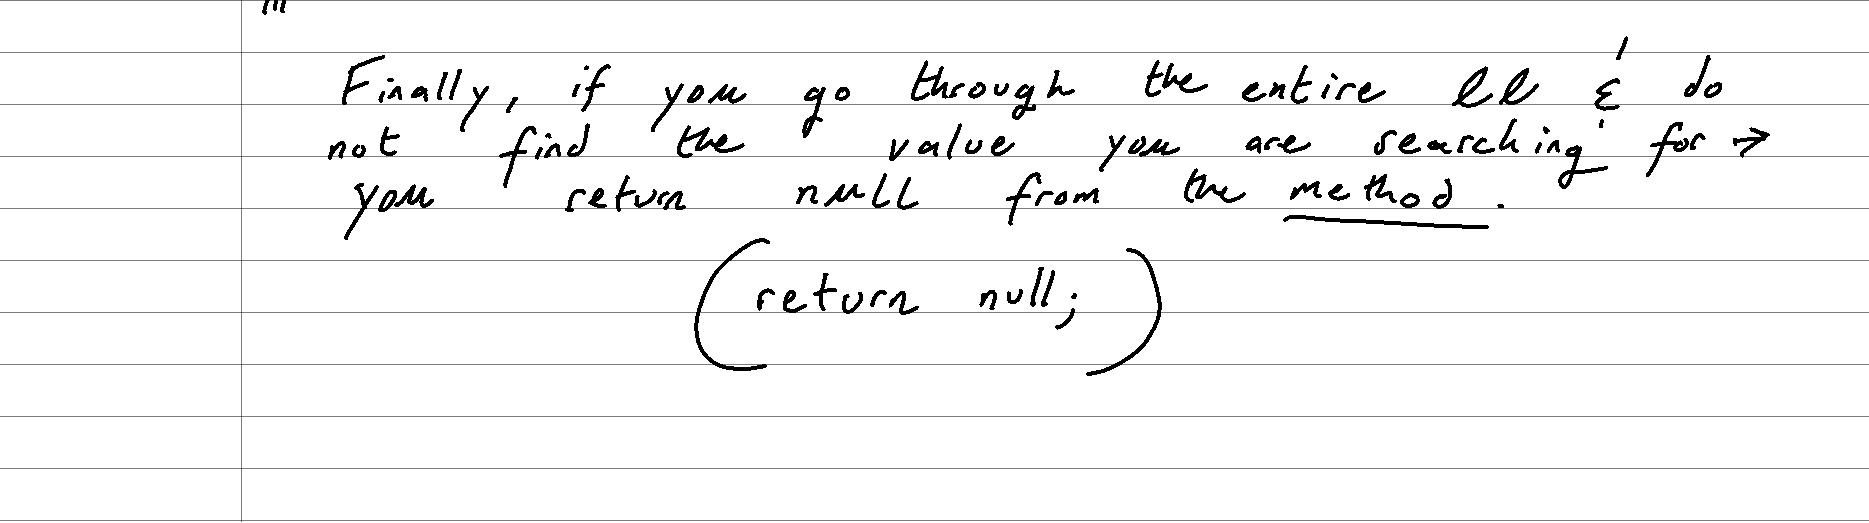 Finally, if you go through the entire ll & do
not find the value you are searching for →
you return null from the method.
(return null;)